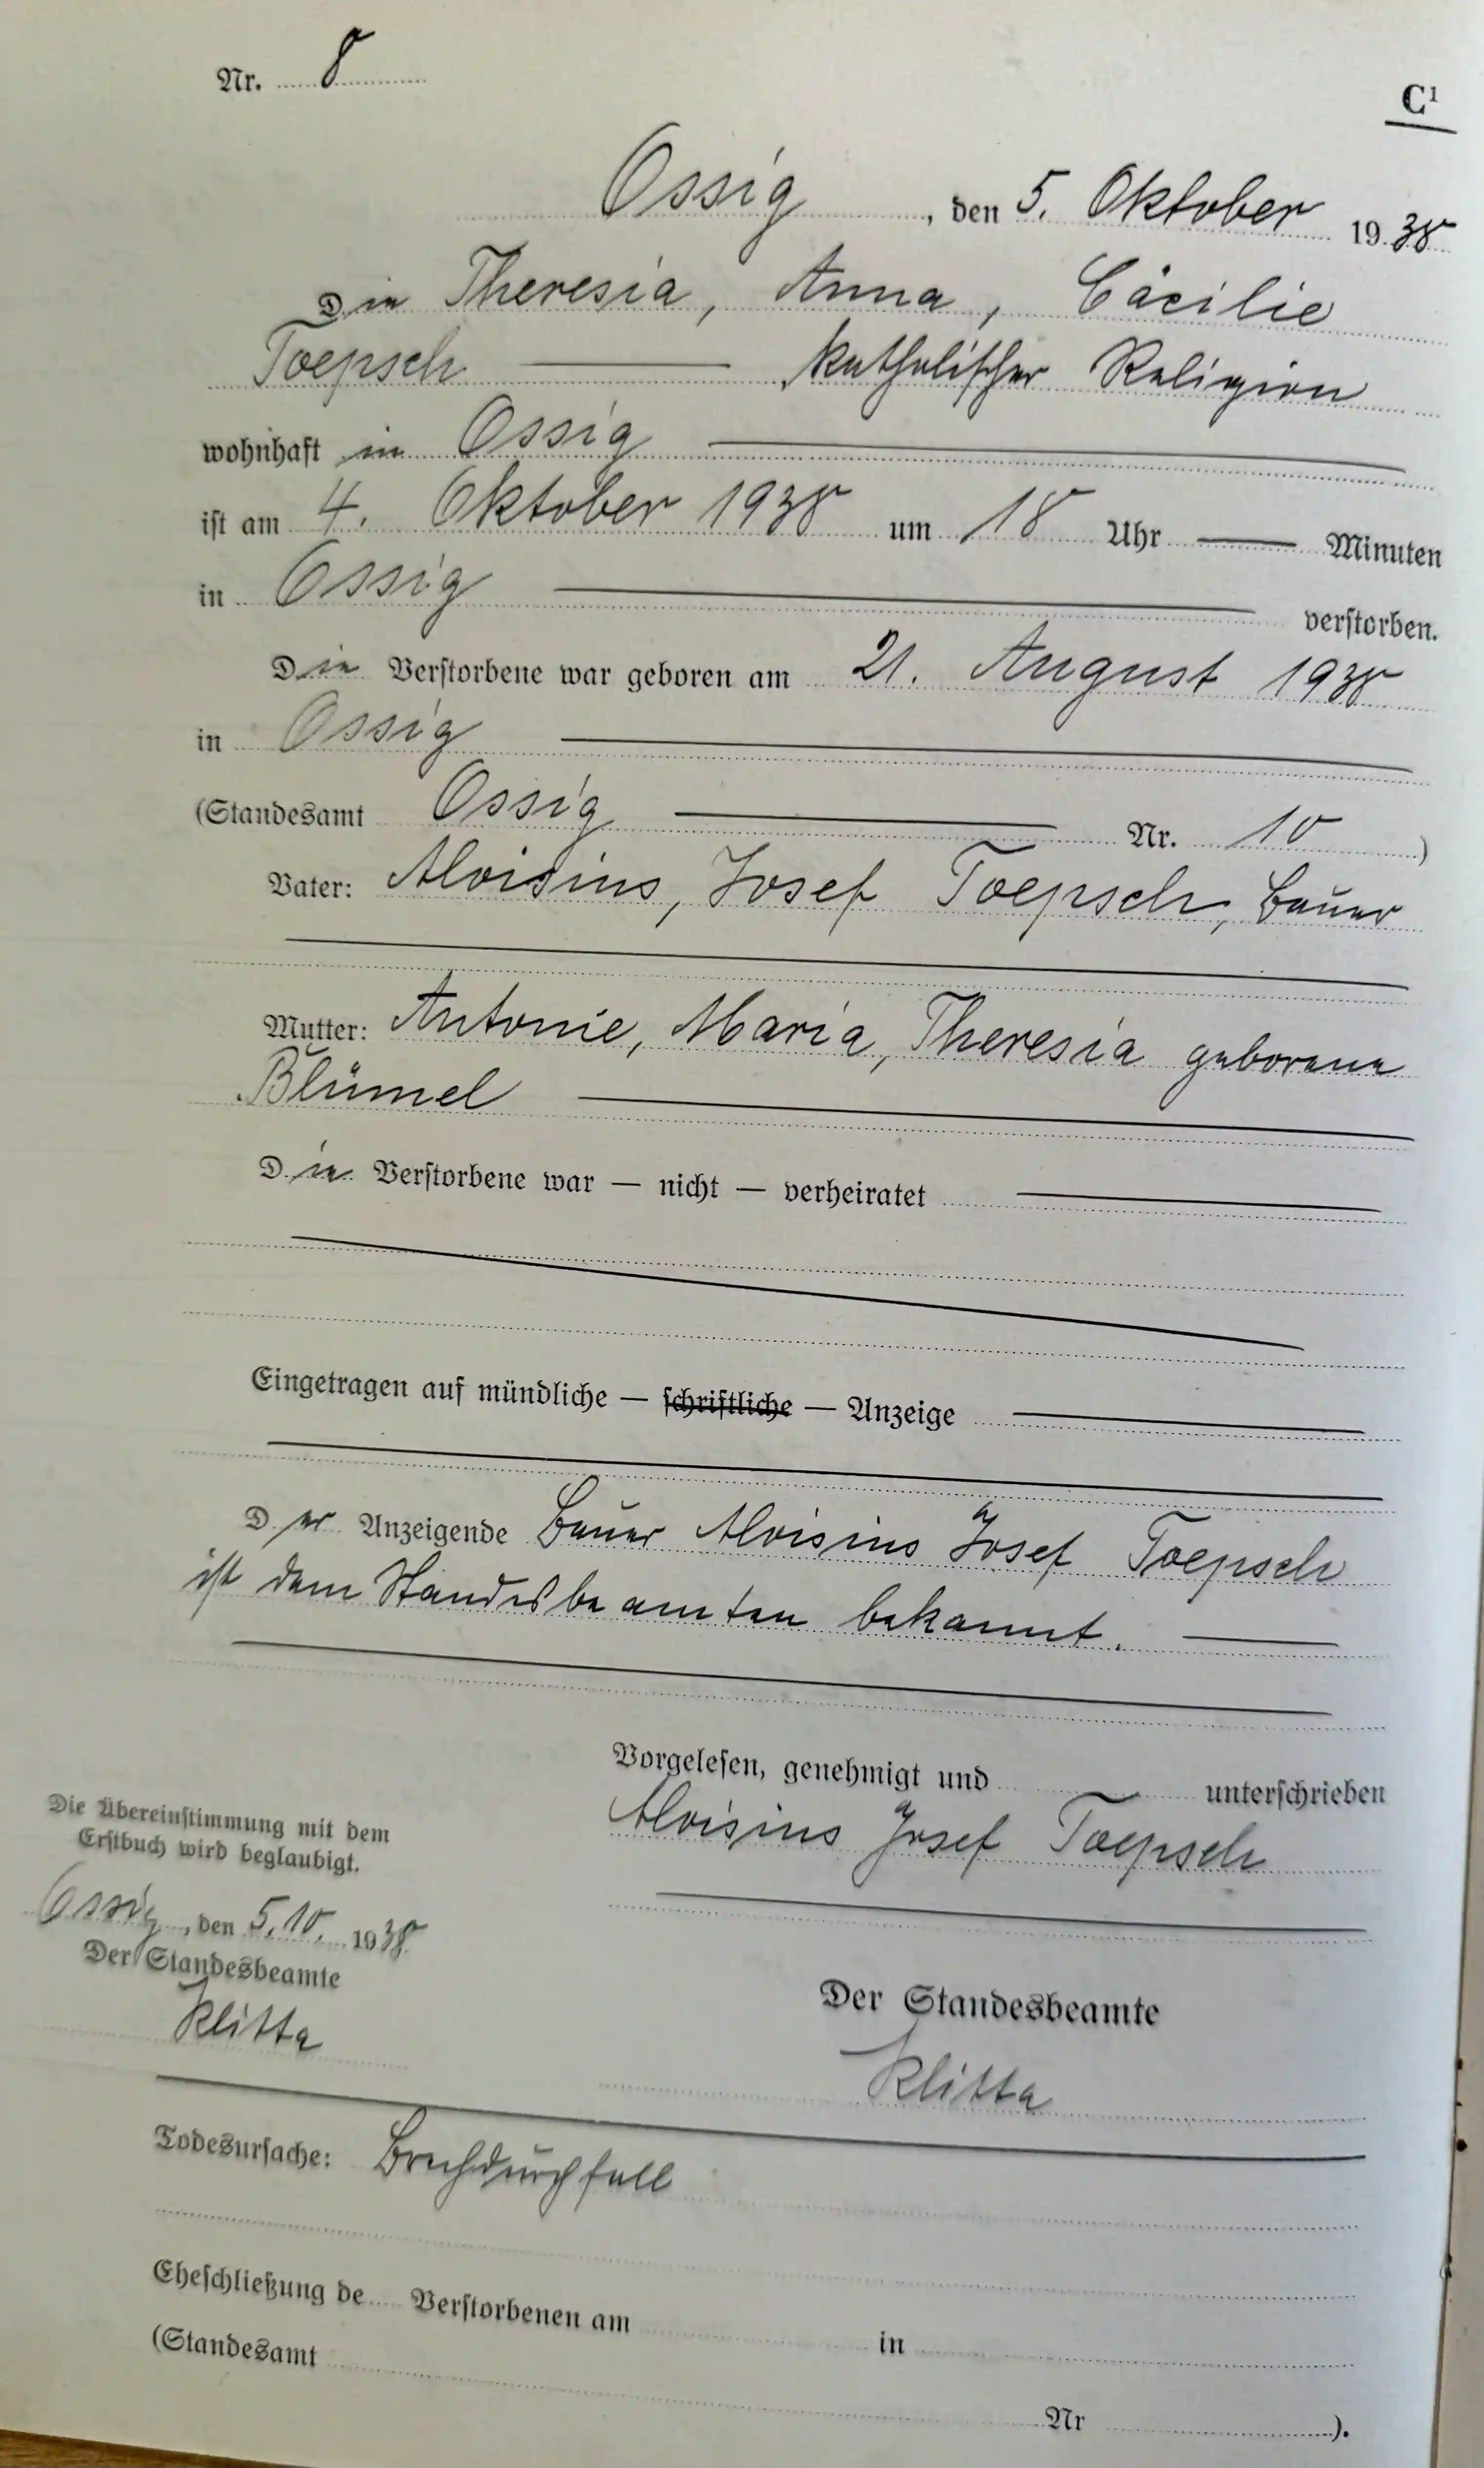 Nr. 8
C¹
Ossig, den 5. Oktober 1938
Die Theresia, Anna, Cäcilie
Toepsch — katholischer Religion
wohnhaft in Ossig —
ist am 4. Oktober 1938 um 18 Uhr — Minuten
in Ossig — verstorben.
Die Verstorbene war geboren am 21. August 1938
in Ossig —
(Standesamt Ossig — Nr. 10)
Vater: Aloisius, Josef Toepsch, Bauer
Mutter: Antonie, Maria, Theresia geborene
Blümel —
Die Verstorbene war — nicht — verheiratet —
Eingetragen auf mündliche — schriftliche — Anzeige —
Der Anzeigende Bauer Aloisius Josef Toepsch
ist dem Standesbeamten bekannt. —
Vorgelesen, genehmigt und — unterschrieben
Aloisius Josef Toepsch
Die Übereinstimmung mit dem
Erstbuch wird beglaubigt.
Ossig, den 5.10. 1938
Der Standesbeamte
Klitta
Der Standesbeamte
Klitta
Todesursache: Brechdurchfall
Eheschließung de Verstorbenen am in
(Standesamt Nr ).